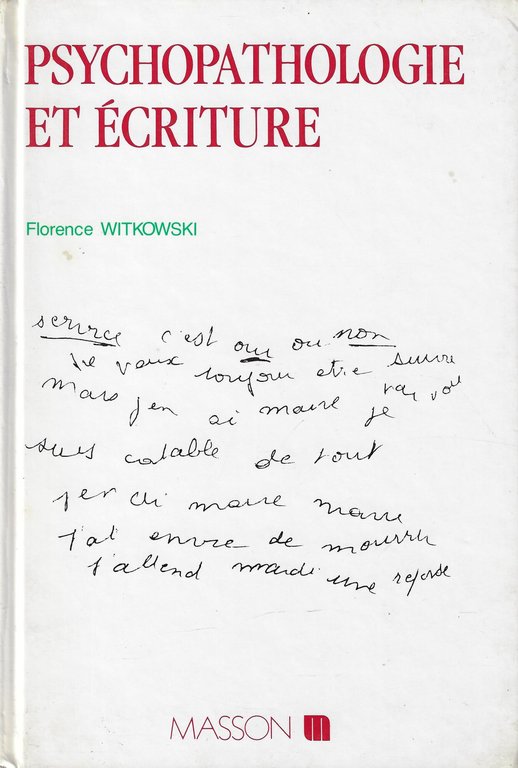 PSYCHOPATHOLOGIE
ET ÉCRITURE
Florence WITKOWSKI
service c'est oui ou non
je veux toujour etre suivre
mais j'en ai marre je par vou
suis catable de tout
j'en ai marre marre
j'ai envie de mourrir
j'attend mardi une reponse
MASSON m